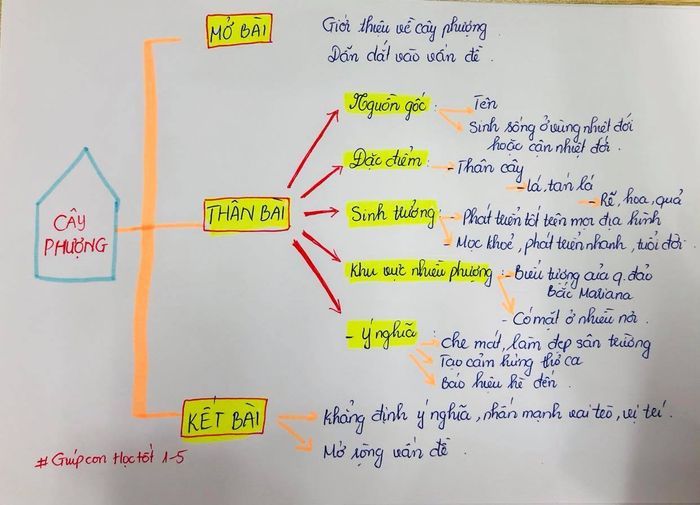 MỞ BÀI
Giới thiệu về cây phượng
Dẫn dắt vào vấn đề.
CÂY
PHƯỢNG
THÂN BÀI
Nguồn gốc:
Tên
Sinh sống ở vùng nhiệt đới
hoặc cận nhiệt đới.
Đặc điểm:
- Thân cây
- lá, tán lá
- Rễ, hoa, quả
Sinh trưởng:
- Phát triển tốt trên mọi địa hình
- Mọc khoẻ, phát triển nhanh, tuổi đời.
Khu vực nhiều phượng:
- Biểu tượng của q. đảo
Bắc Mariana
- Có mặt ở nhiều nơi.
- Ý nghĩa
Che mát, làm đẹp sân trường
Tạo cảm hứng thơ ca
Báo hiệu hè đến.
KẾT BÀI
Khẳng định ý nghĩa, nhấn mạnh vai trò, vị trí.
Mở rộng vấn đề.
# Giúp con Học tốt 1-5